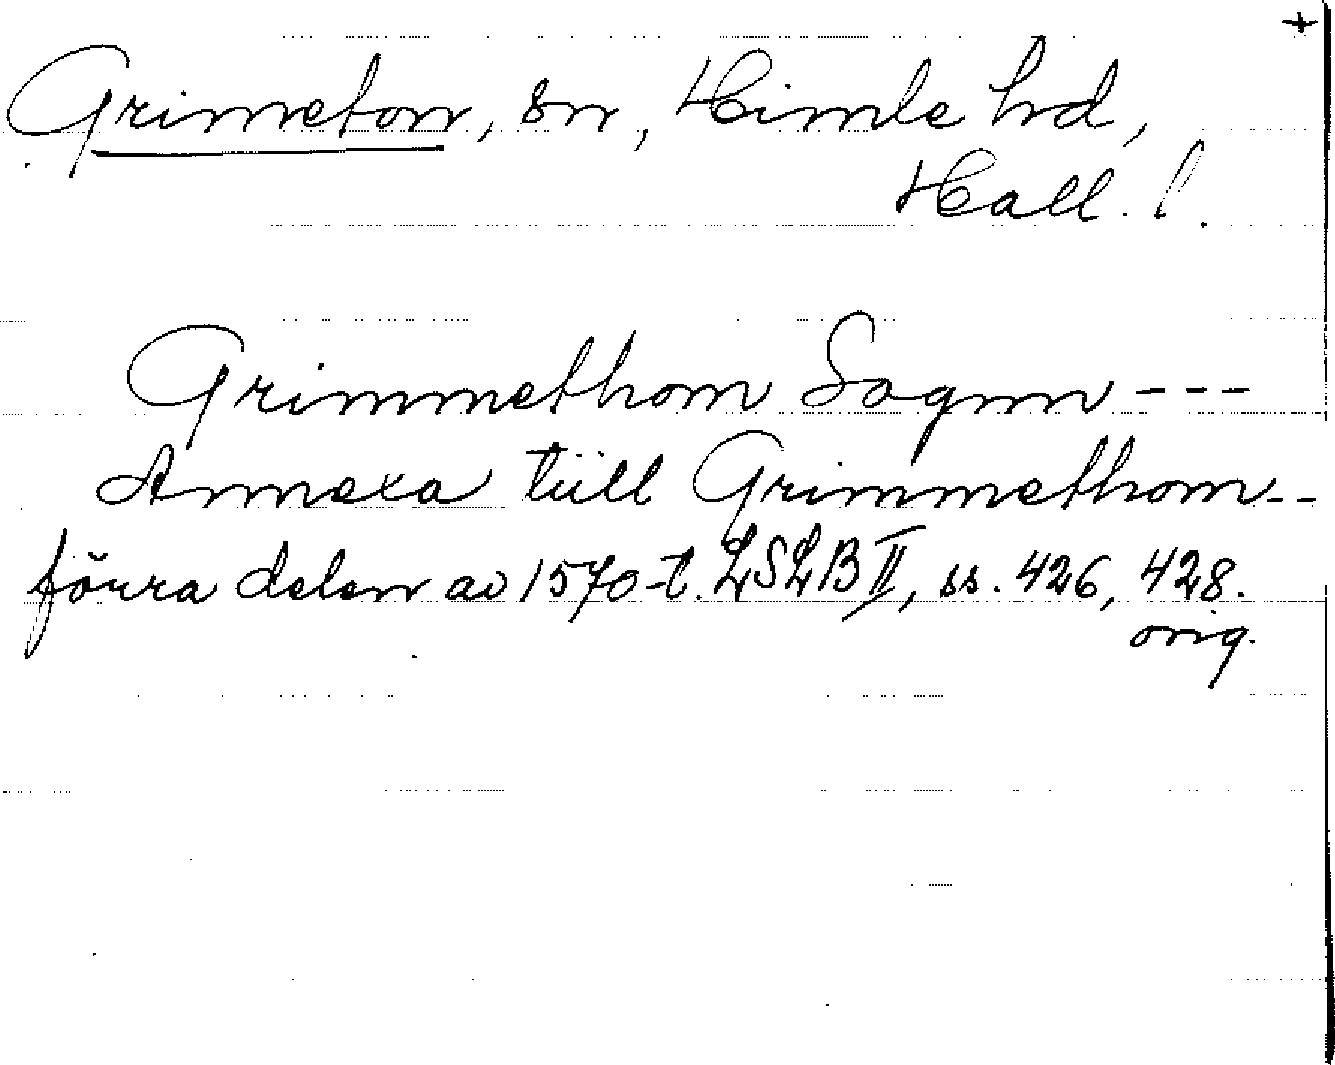 +
Grimeton, sn, Himle hd,
Hall. l.
Grimmethom Sognn ---
Annexa tiill Grimmethom--
förra delen av 1570-t. LSLB II, ss. 426, 428.
orig.